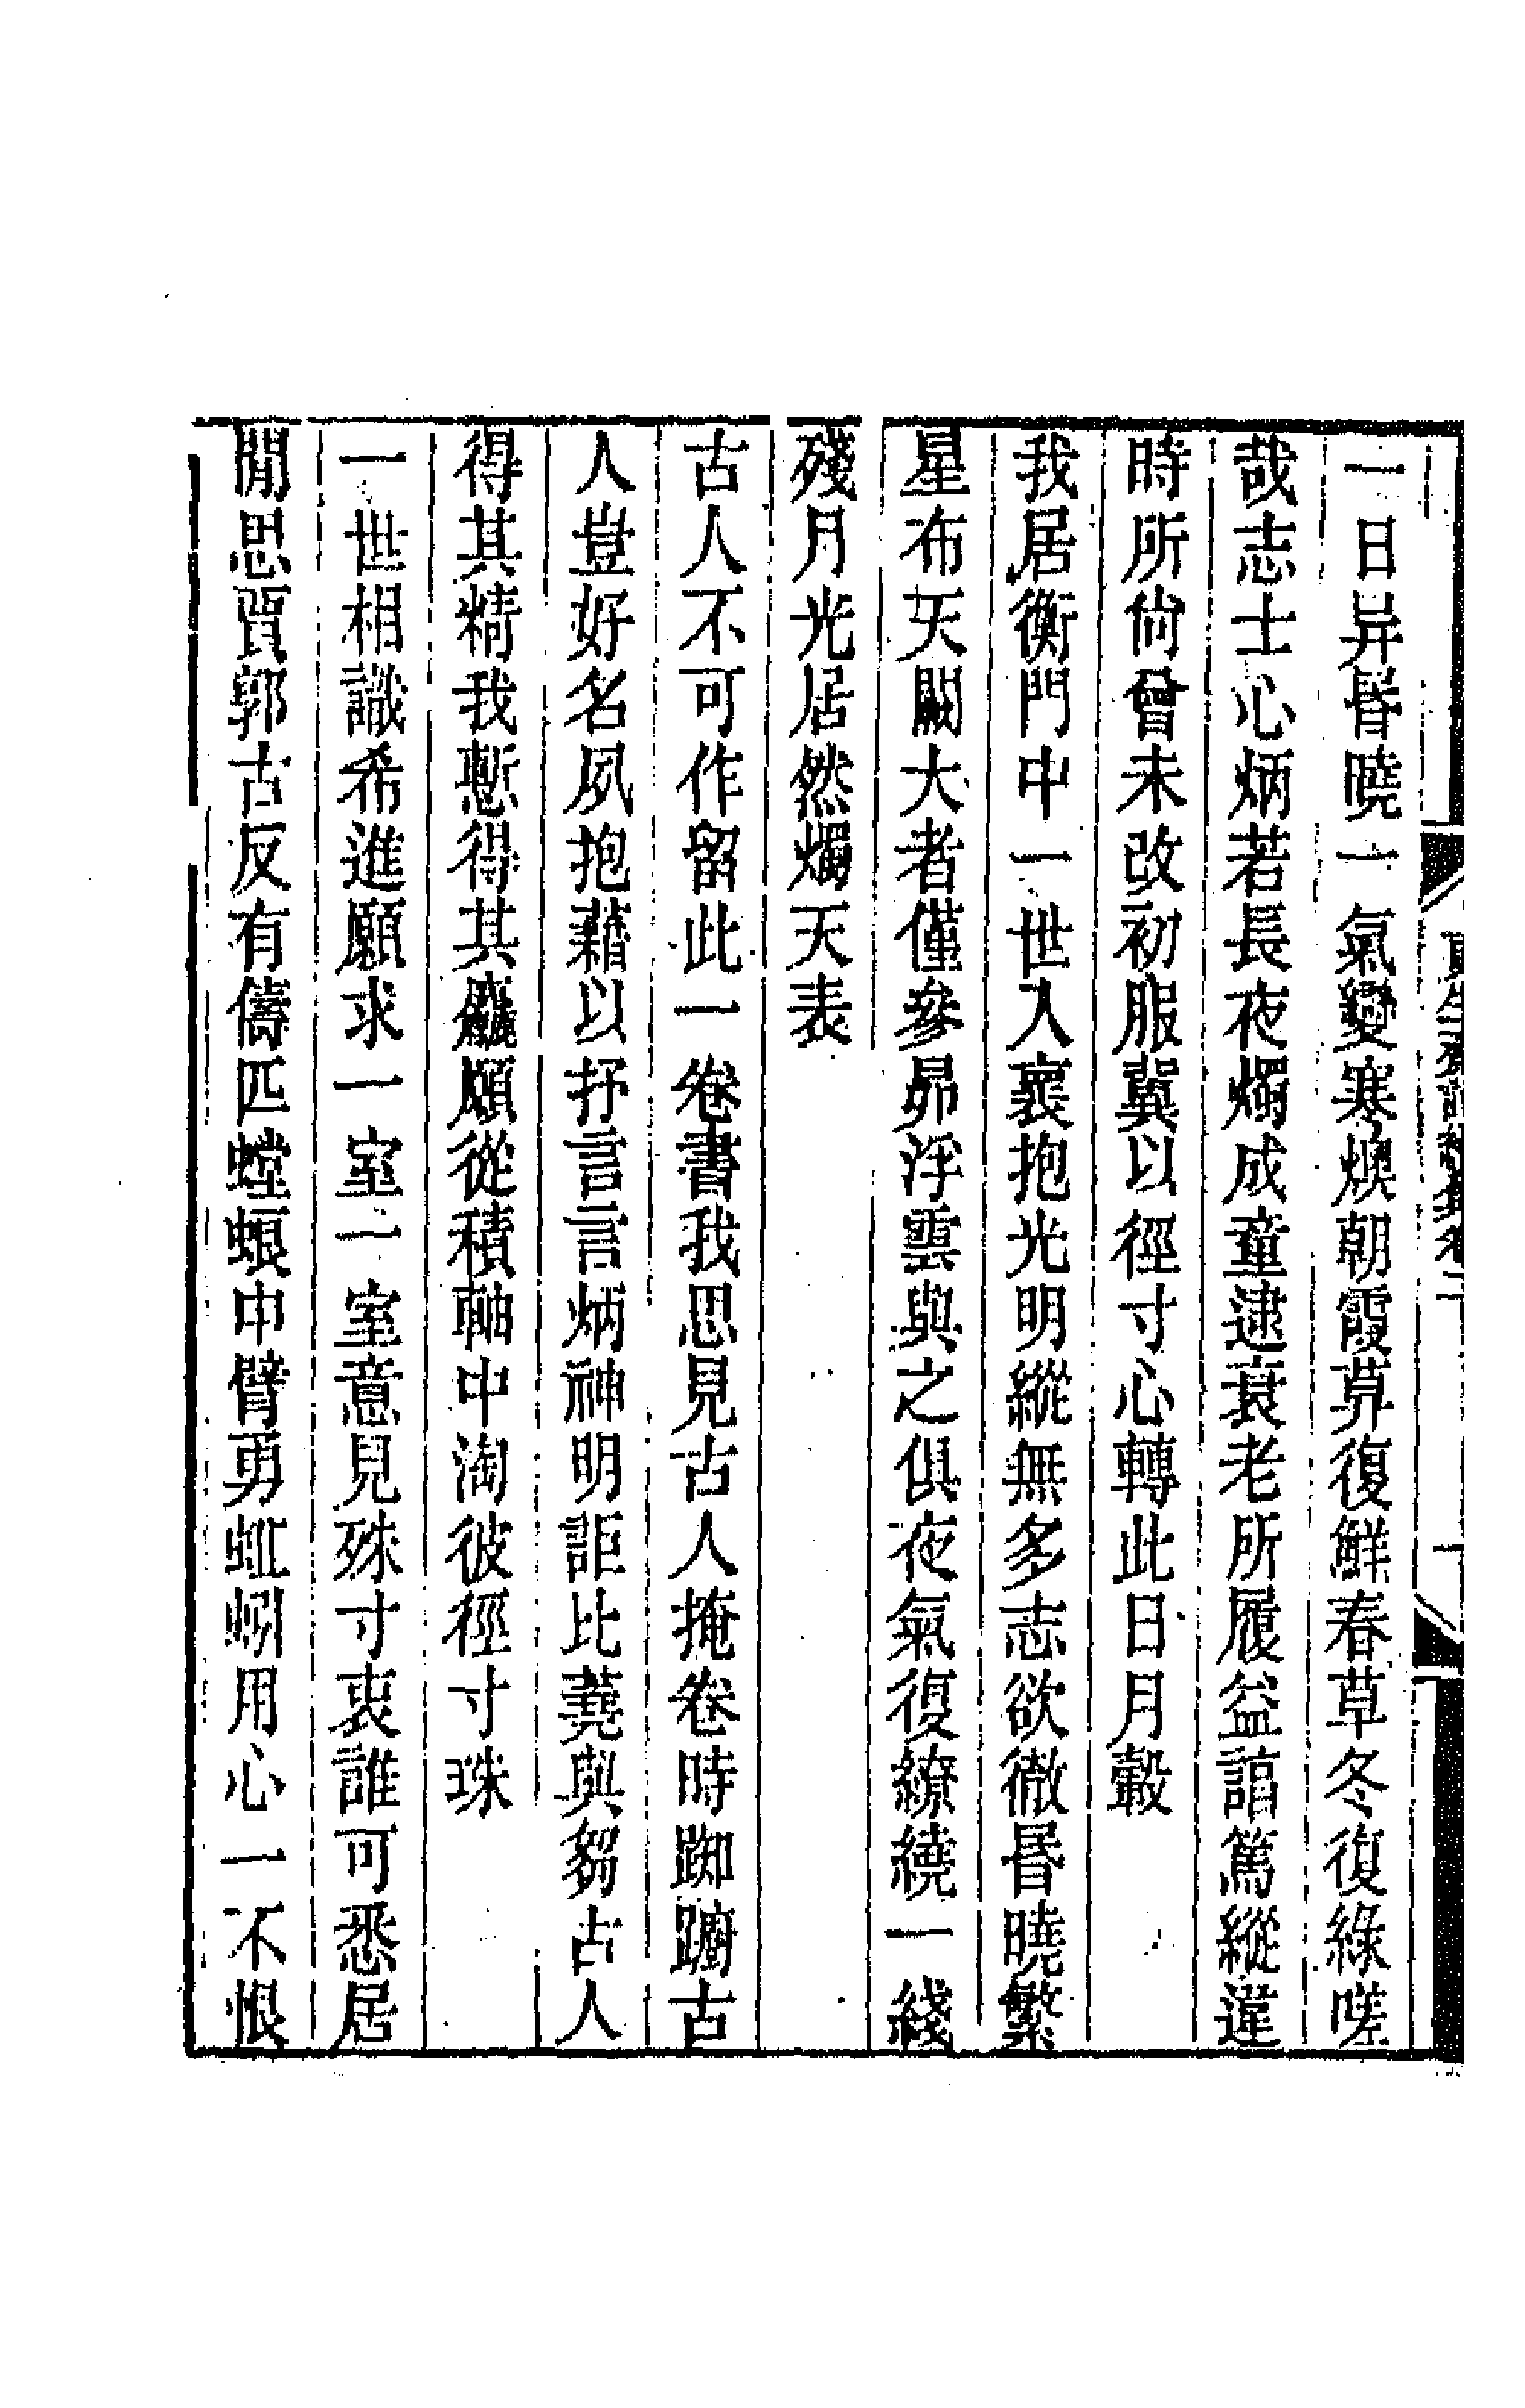 一日异昬曉一氣變寒燠朝霞莫復鮮春草冬復綠嗟
哉志士心炳若長夜燭成童逮衰老所履益謟篤縱違
時所尙曾未改初服冀以徑寸心轉此日月轂
我居衡門中一世入裏抱光明縱無多志欲徹昬曉繁
星布天闕大者僅參昴浮雲與之俱夜氣復繚繞一綫
殘月光居然燭天表
古人不可作留此一卷書我思見古人掩卷時踟躕古
人豈好名夙抱藉以抒言言炳神明詎比蕘與芻古人
得其精我慙得其麤願從積軸中淘彼徑寸珠
一世相識希進願求一室一室意見殊寸衷誰可悉居
閒思賈郭古反有儔匹螳蜋申臂勇蚯蚓用心一不恨